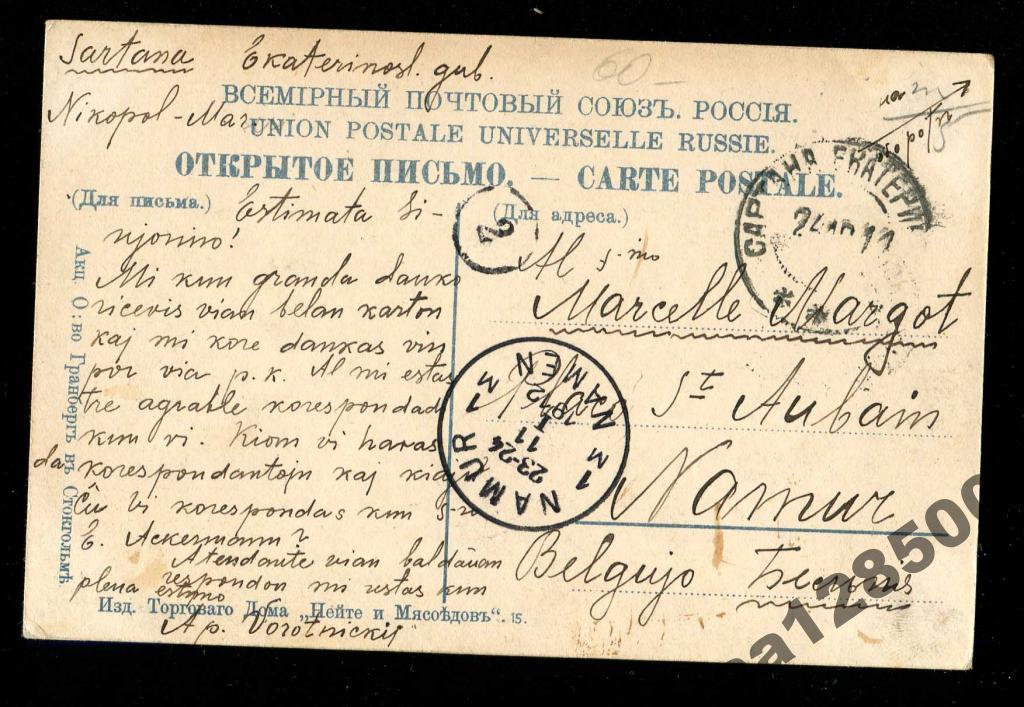 Sartana Ekaterinosl. gub.
Nikopol-Mar
60-
ВСЕМІРНЫЙ ПОЧТОВЫЙ СОЮЗЪ. РОССІЯ.
UNION POSTALE UNIVERSELLE RUSSIE.
ОТКРЫТОЕ ПИСЬМО. — CARTE POSTALE.
(Для письма.)
(Для адреса.)
Estimata Si-
njorino!
Mi kun granda danko
ricevis vian belan karton
kaj mi kore dankas vin
por via p.k. Al mi estas
tre agrable korespondad
kun vi. Kiom vi havas
da korespondantojn kaj kiaj
Ĉu vi korespondas kun S-ro
E. Ackermann?
Atendante vian baldaŭan
respondon mi restas kun
plena estimo
Ap. Vorotnickij
Al
Marcelle Margot
St Aubain
Namur
Belgujo Бельгія
САРТАНА ЕКАТЕРИН
2
NAMUR 1 M
23-24
11
I
1912
NAMEN 1 M
Акц. О:во Гранбергъ въ Стокгольмѣ
Изд. Торговаго Дома „Нейте и Мясоѣдовъ". 15.
a128500